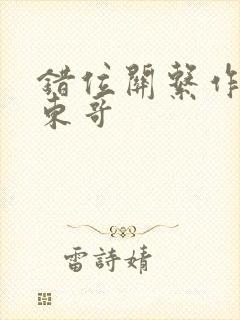 錯位關系作
東哥
雷詩婧